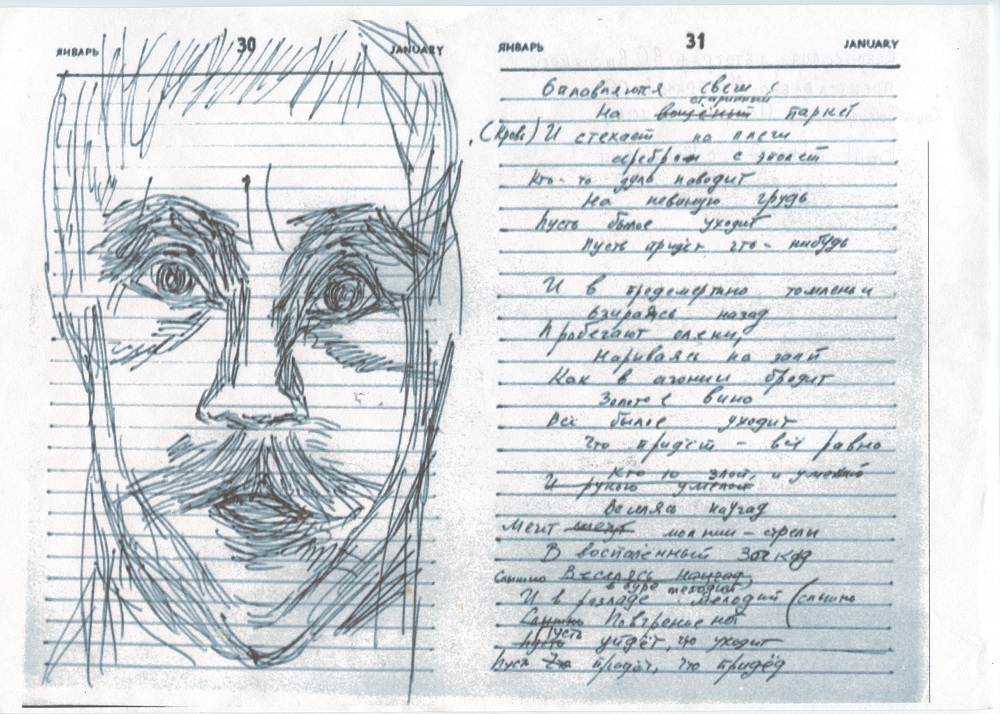 ЯНВАРЬ 30 JANUARY
ЯНВАРЬ 31 JANUARY
Оплавляются свечи
старинный
На вощёный паркет
(Кровь) И стекает на плечи
серебром с эполет
Кто-то дуль наводит
На невиную грудь
Пусть былое уходит
Пусть придёт что-нибудь
И в предсмертно томленьи
взираясь назад
Пробегают олени,
Нарываясь на залп
Как в агонии бродит
Золотое вино
Всё былое уходит
Что придёт - всё равно
Кто то злой, и умелый
И рукою умелой
Веселясь наугад
Мечет мечет молнии-стрелы
В воспалённый закад
Слышно Веселясь наугад,
в буре мелодий
И в разладе мелодий (слышно
Слышно Повторение нот
Пусть
Пусть уйдёт, что уходит
Пусть Что продёт, что придёд